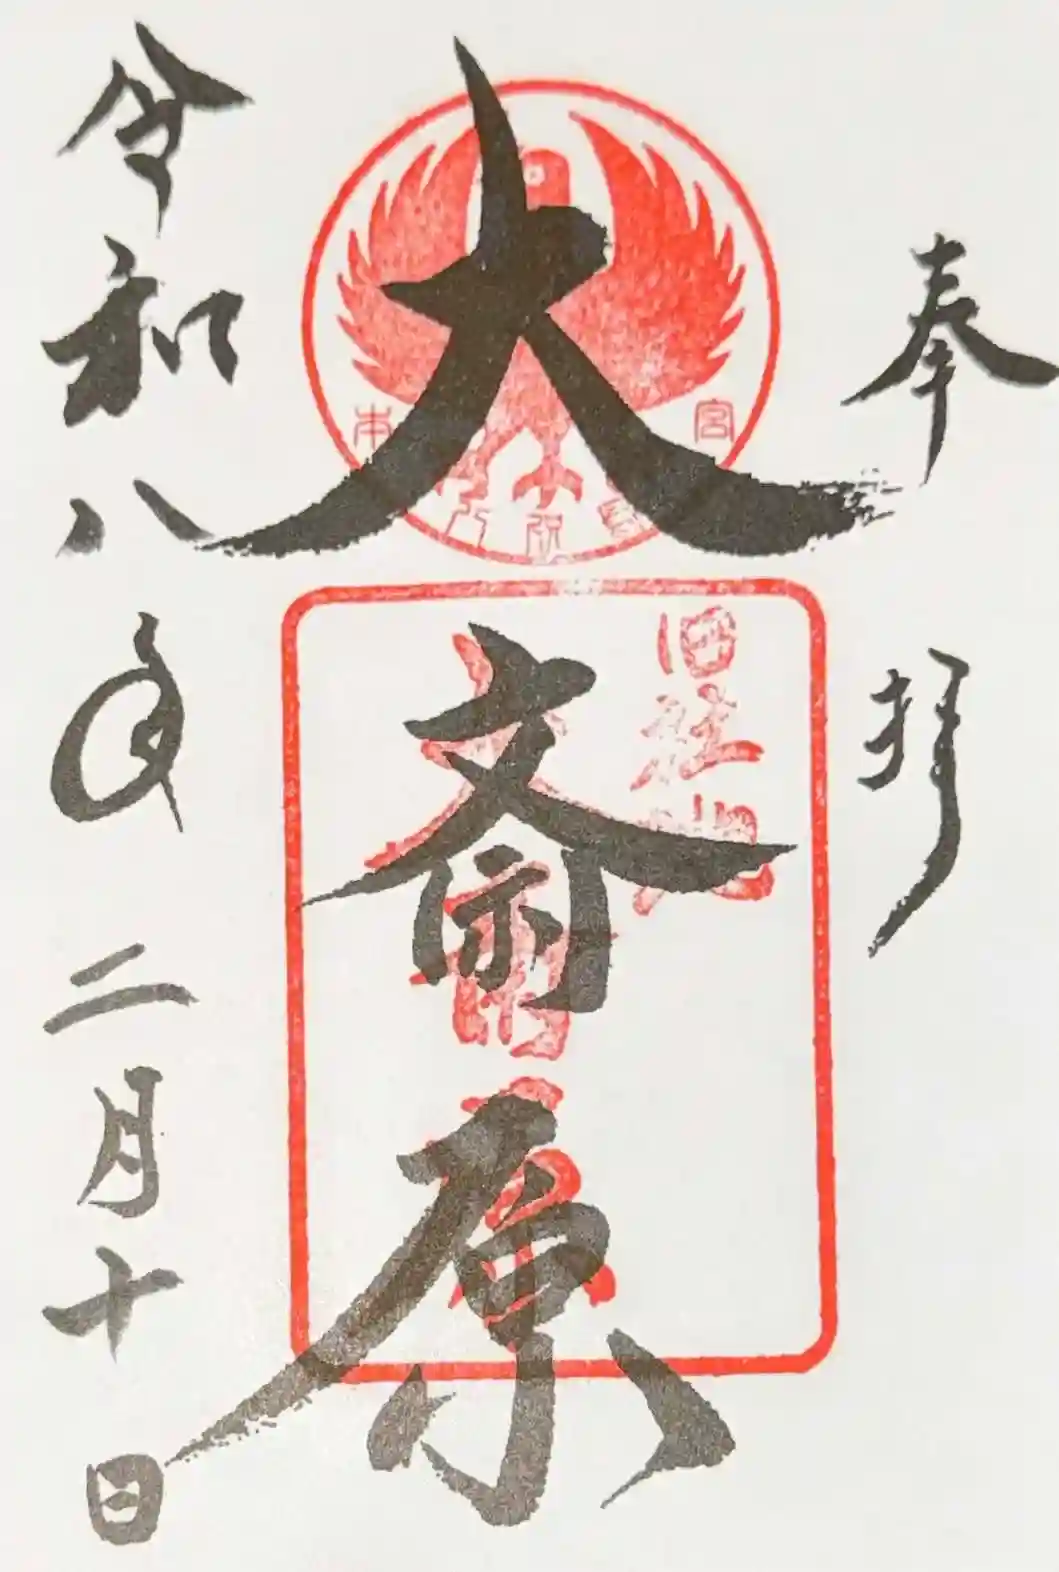 奉拝
大斎原
旧社地
大斎原
令和八年二月十日